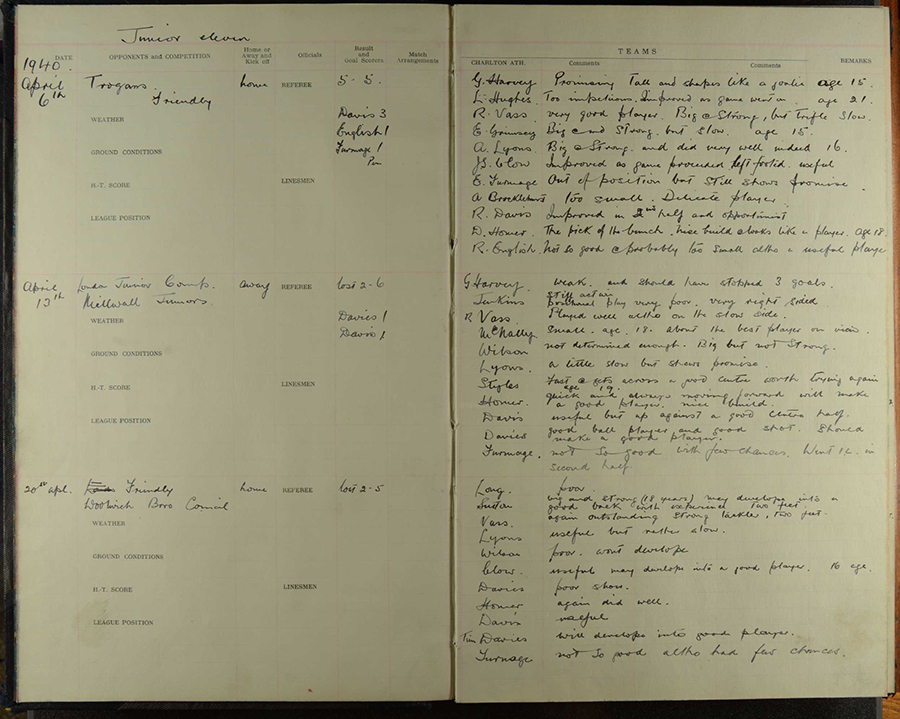 Junior eleven
DATE OPPONENTS and COMPETITION Home or Away and Kick off Officials Result and Goal Scorers Match Arrangements
1940.
April 6th Trogans home REFEREE 5 - 5.
Friendly
WEATHER Davis 3
English 1
GROUND CONDITIONS Turmage 1
Pen
H.-T. SCORE LINESMEN
LEAGUE POSITION
April 13th London Junior Comp. away REFEREE lost 2-6
Millwall Juniors.
WEATHER Davies 1
Davis 1
GROUND CONDITIONS
H.-T. SCORE LINESMEN
LEAGUE POSITION
20th apl. Friendly home REFEREE lost 2-5
Woolwich Boro Council
WEATHER
GROUND CONDITIONS
H.-T. SCORE LINESMEN
LEAGUE POSITION
TEAMS
CHARLTON ATH. Comments Comments REMARKS
G. Harvey Promising Tall and shapes like a goalie age 15.
L. Hughes. Too impetious. Improved as game went on. age 21.
R. Vass very good player. Big & Strong, but trifle slow.
E. Grimsey Big and Strong. but slow. age 15.
A. Lyons. Big & Strong. and did very well indeed 16.
Clow Improved as game proceeded left footed. useful
E. Turmage Out of position but still shows promise.
A Brocklehurst too small. Delicate player.
R. Davis Improved in 2nd half and opportunist
D. Homer. The pick of the bunch. nice build & looks like a player. age 18.
R. English. Not so good & probably too small altho a useful player
G Harvey. weak. and should have stopped 3 goals.
Jenkins positional play very poor. very right sided
R Vass Played well altho on the slow side.
McNally. Small. age. 18. about the best player on view.
Wilson not determined enough. Big but not strong.
Lyons. a little slow but shews promise.
Styles Fast & gets across a good centre worth trying again
age 19.
Homer. quick and always moving forward will make
a good player. nice build.
Davis useful but up against a good centre half.
Davies good ball player and good shot. Should
make a good player.
Turmage. not so good with few chances. Went I.L. in
second half.
Long. poor.
big and strong (18 years) may develope into a
good back with experience two feet
Vass. again outstanding strong tackler, two feet.
Lyons useful but rather slow.
Wilson poor. wont develope
Clow. useful may develope into a good player. 16 age.
Davies poor show.
Homer again did well.
Davis useful
Tim Davies will develope into good player.
Turmage not so good altho had few chances.